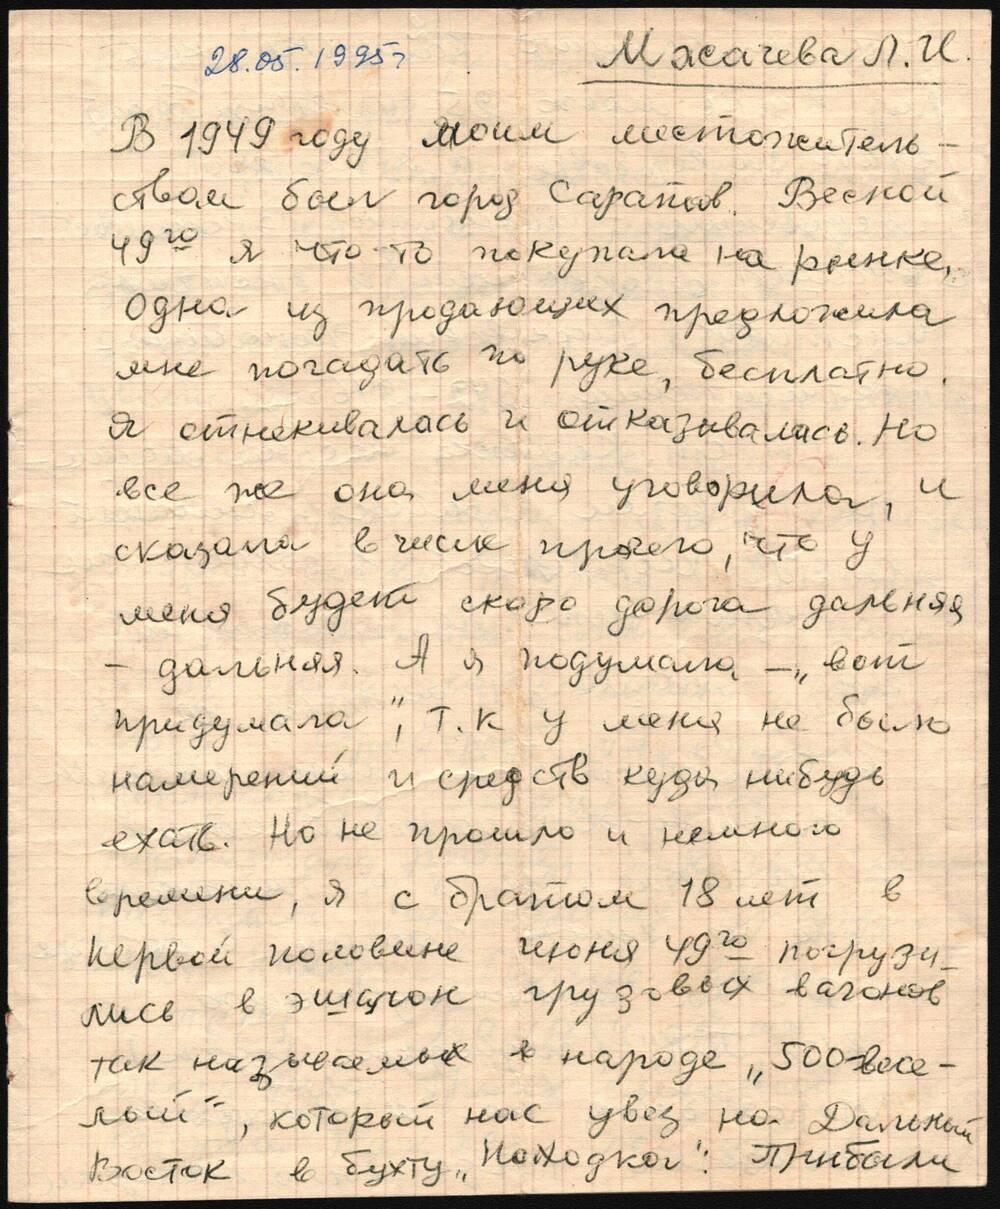 28.05.1995г
Мхачева Л.И.
В 1949 году моим местожитель-
ством был город Саратов. Весной
49го я что-то покупала на рынке,
одна из продающих предложила
мне погадать по руке, бесплатно.
Я отнекивалась и отказывалась. Но
все же она меня уговорила, и
сказала в числе прочего, что у
меня будет скоро дорога дальняя
- дальняя. А я подумала, - „вот
придумала", т.к у меня не было
намерений и средств куда нибудь
ехать. Но не прошло и немного
времени, я с братом 18 лет в
первой половине июня 49го погрузи-
лись в эшалон грузовых вагонов
так называемых в народе „500-весе-
лый", который нас увез на Дальный
Восток в бухту „Находка". Прибыли